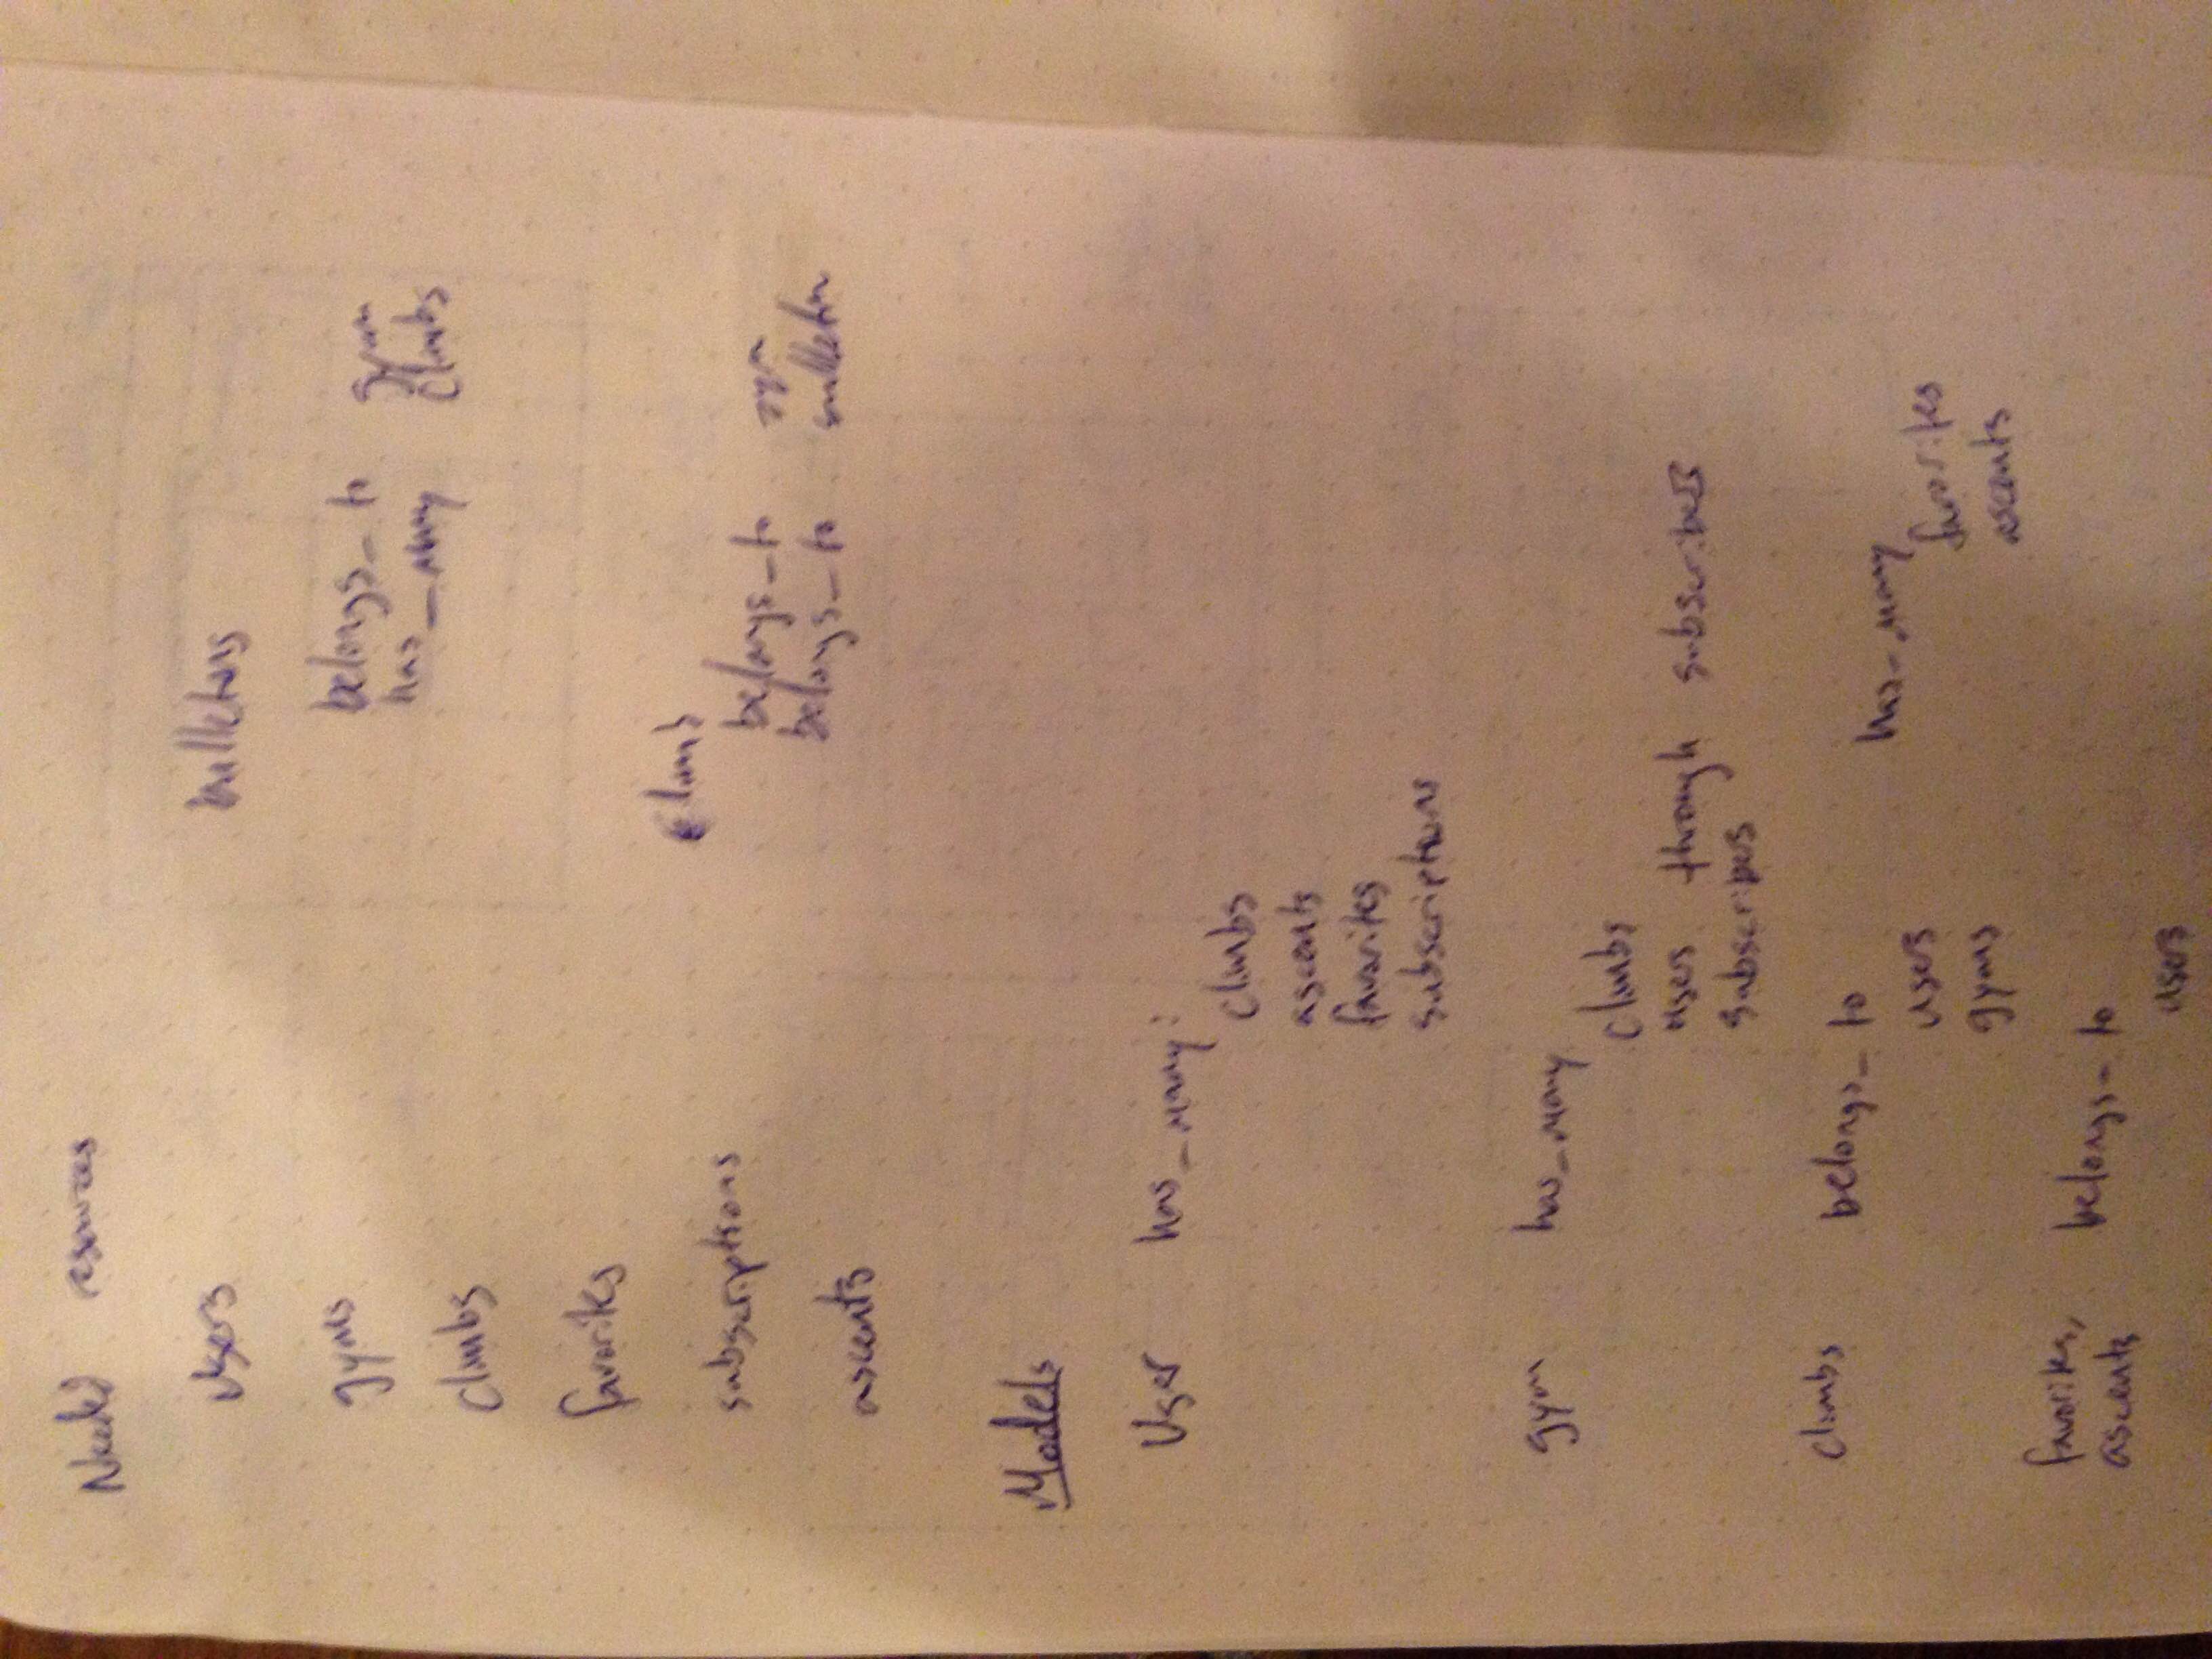 Needed resources
users
gyms
climbs
favorites
subscriptions
ascents
bulletins
belongs_to gym
has_many climbs
climb
belongs_to gym
belongs_to
Models
User has_many:
climbs
ascents
favorites
subscriptions
gym has_many
climbs
users through subscribers
subscribers
climbs belongs_to
users
gyms
has_many
favorites
ascents
favorites,
ascents belongs_to
users